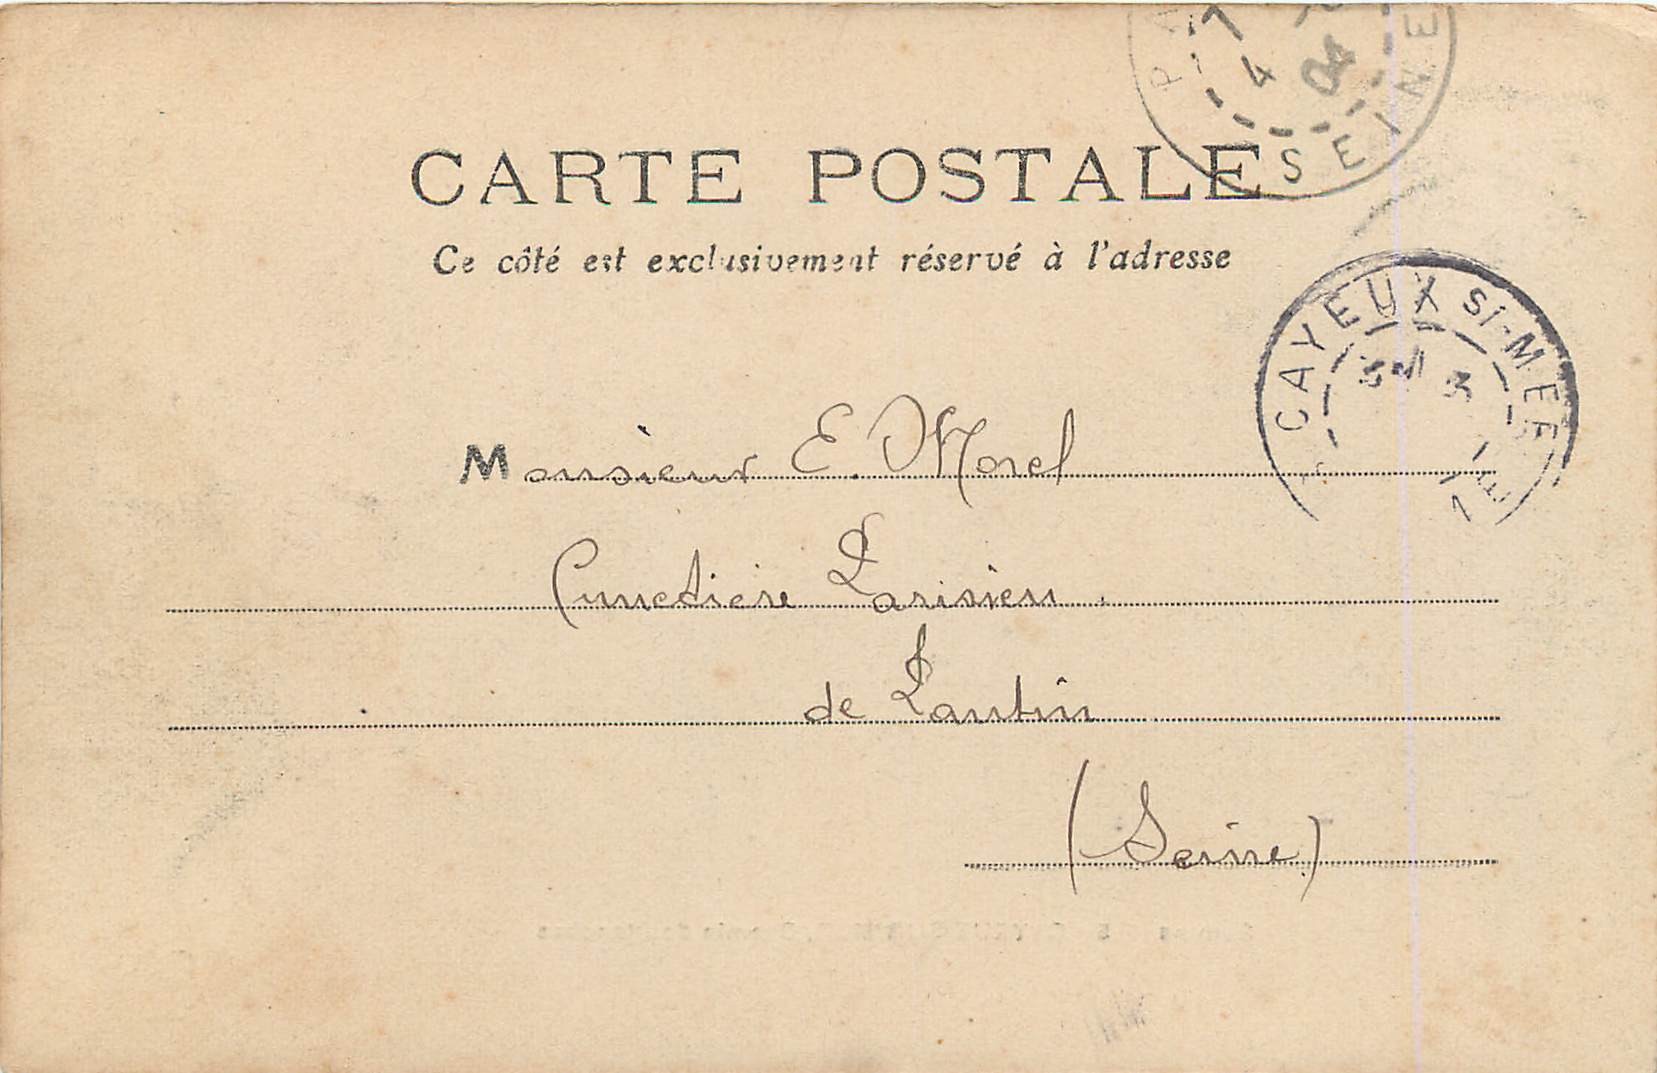 PA
7
4 04
SEINE
CARTE POSTALE
Ce côté est exclusivement réservé à l'adresse
CAYEUX St-MER
Monsieur E. Morel
Cimetière Parisien
de Pantin
(Seine)